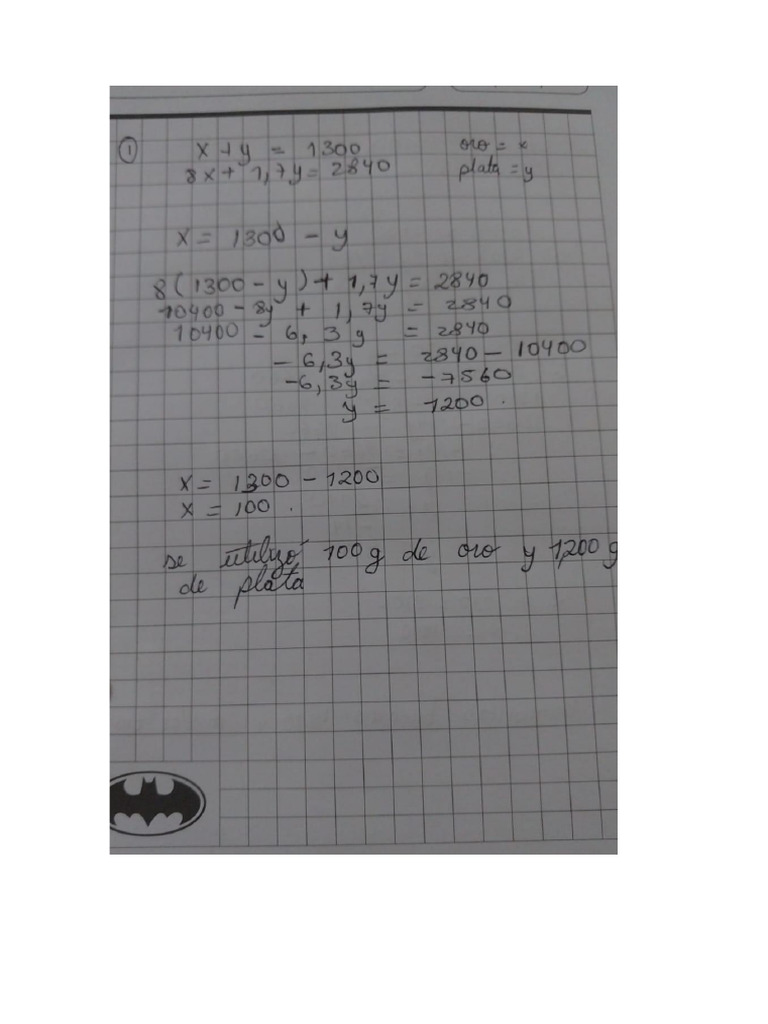 ① x + y = 1300 oro = x
8x + 1,7y = 2840 plata = y
x = 1300 - y
8(1300 - y) + 1,7y = 2840
10400 - 8y + 1,7y = 2840
10400 - 6,3y = 2840
- 6,3y = 2840 - 10400
-6,3y = -7560
y = 1200.
x = 1300 - 1200
x = 100.
se utilizó 100g de oro y 1,200 g
de plata